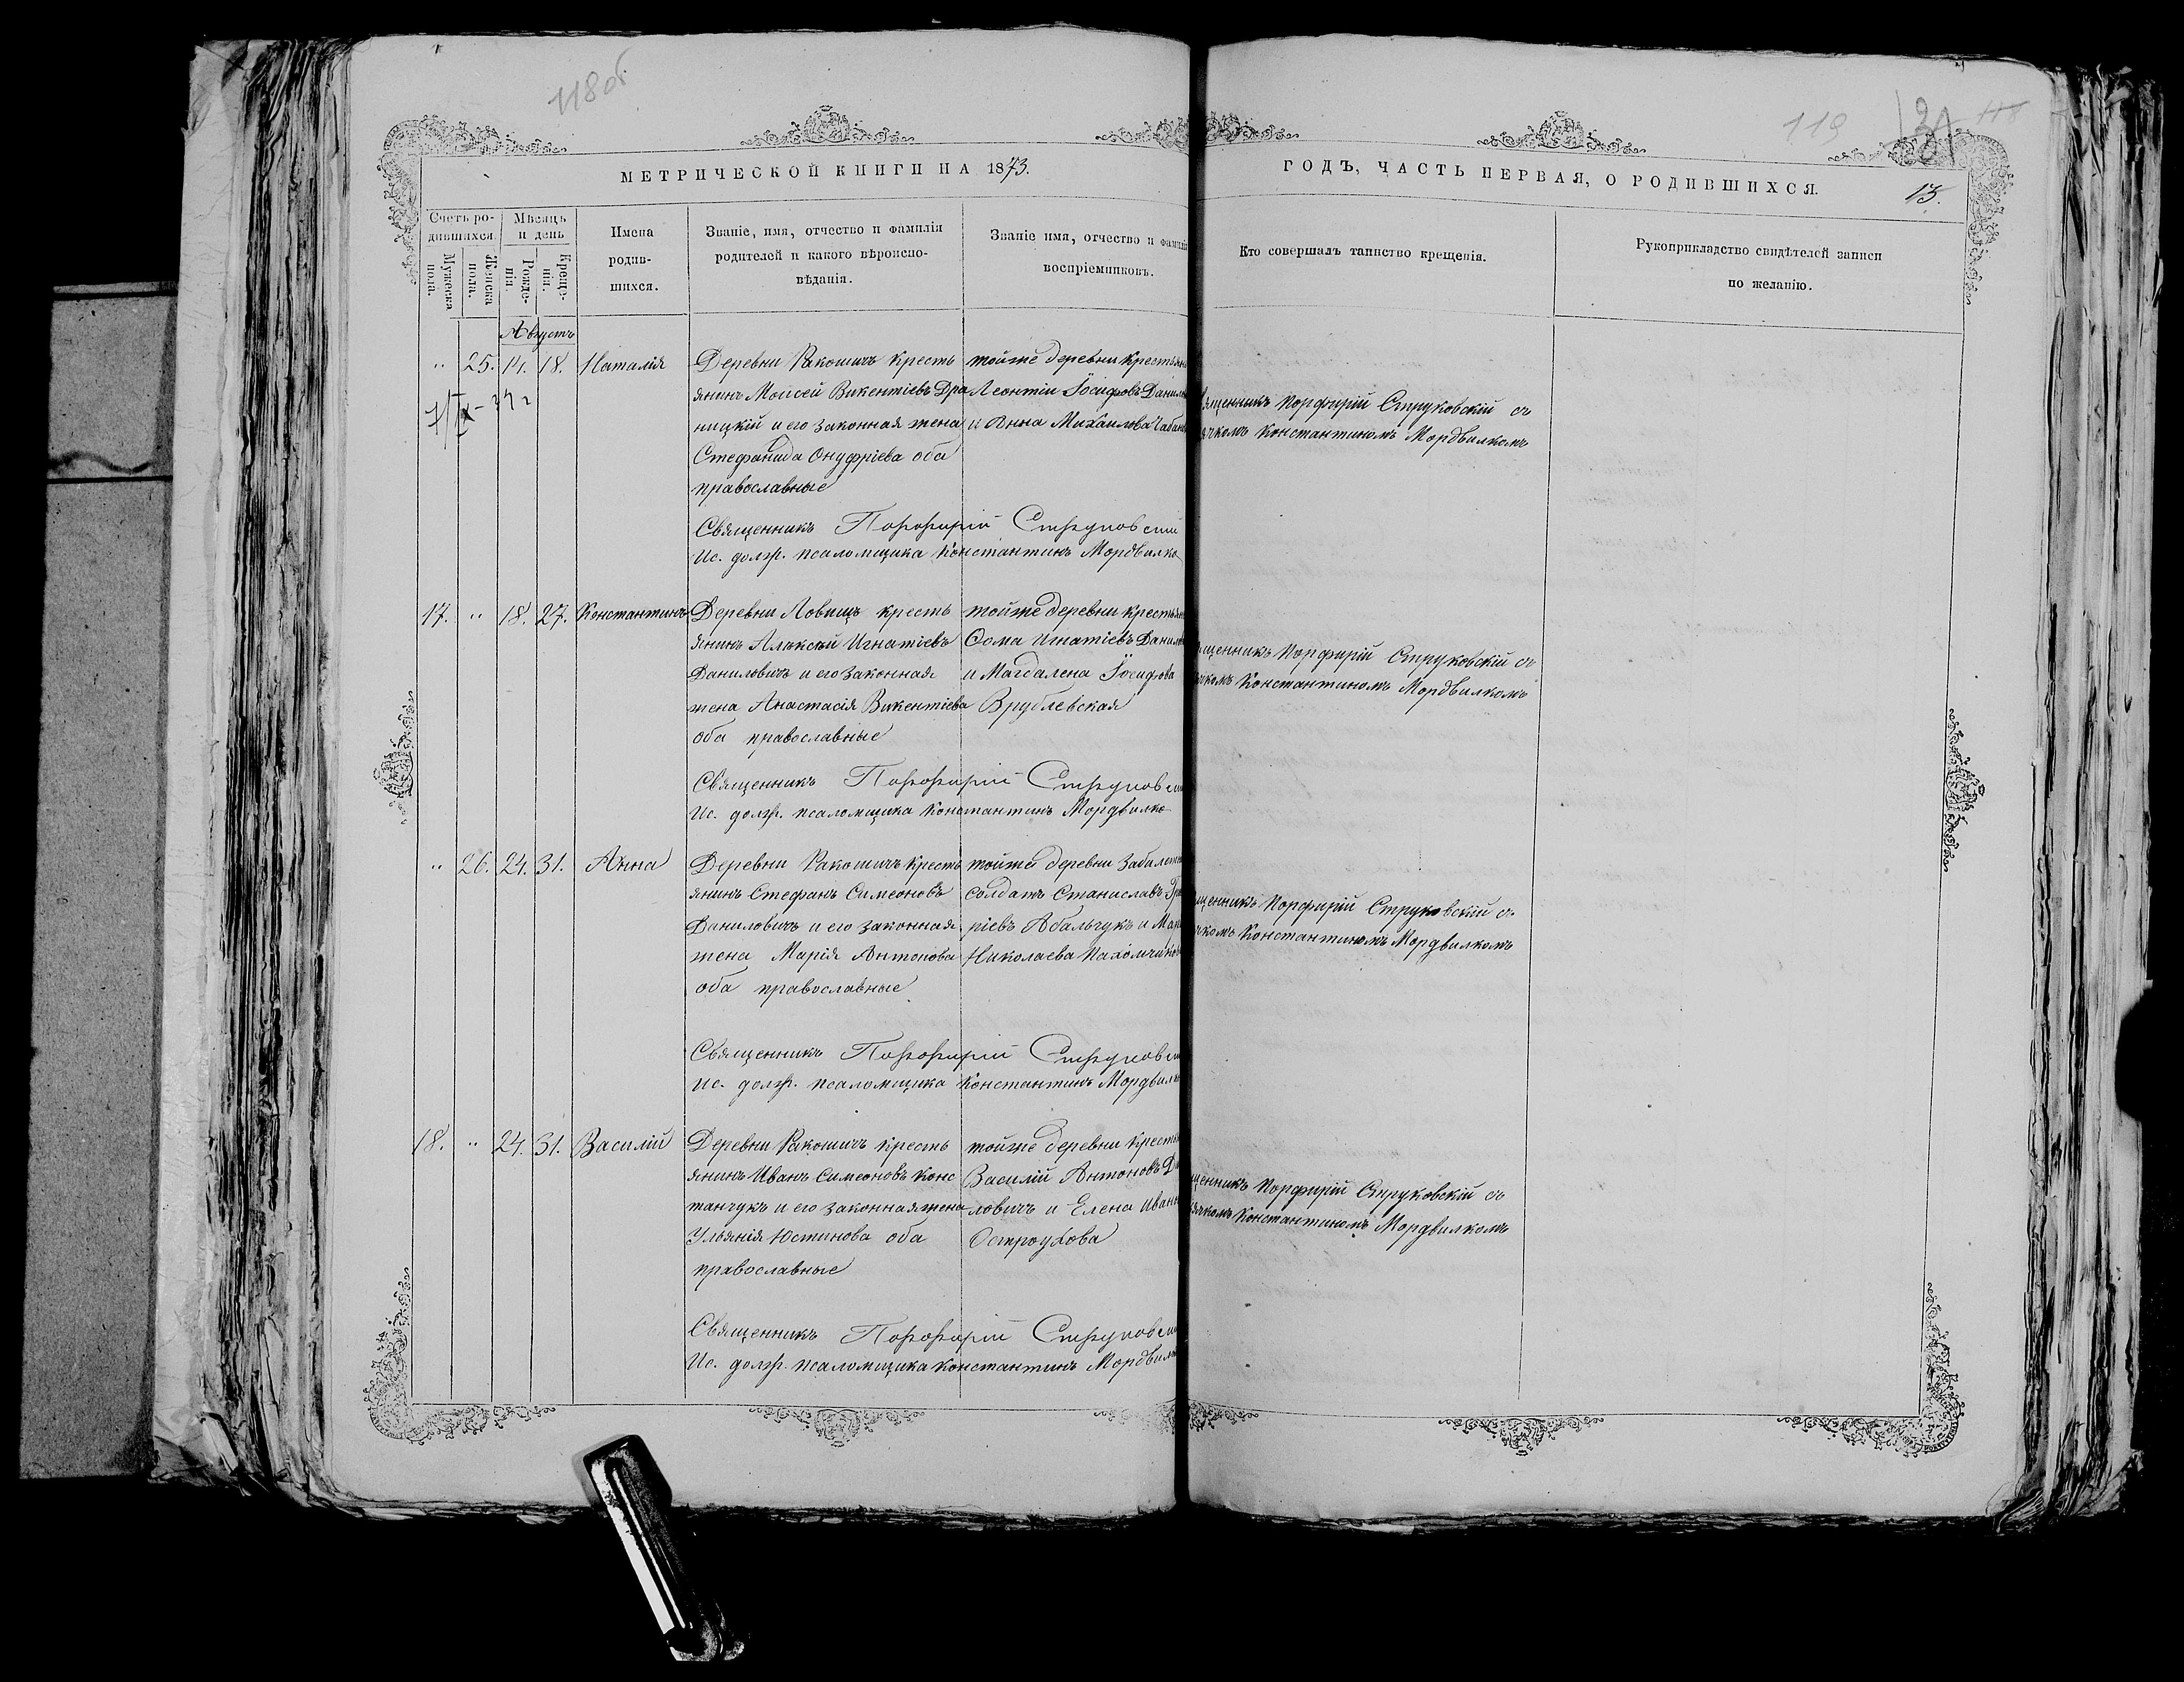 118 об
119
118
МЕТРИЧЕСКОЙ КНИГИ НА 1873.
ГОДЪ, ЧАСТЬ ПЕРВАЯ, О РОДИВШИХСЯ.
13.
Счетъ ро-
дившихся.
Мѣсяцъ
и день
Мужеска
пола.
Женска
пола.
Рожде-
нія.
Креще-
нія.
Имена
родив-
шихся.
Званіе, имя, отчество и фамилія
родителей и какого вѣроиспо-
вѣданія.
Званіе имя, отчество и фамилія
воспріемниковъ.
Кто совершалъ таинство крещенія.
Рукоприкладство свидѣтелей записи
по желанію.
Августъ
" 25. 14. 18. Наталія
Деревни Ракошичъ кресть
янинъ Моисей Викентіевъ Дра
ницкій и его законная жена
Стефанида Онуфріева оба
православные
тойже деревни крестьян
Леонтіи Іосифовъ Данил
и Анна Михаилова Чабан
ященникъ Порфирій Струковскій съ
ячкомъ Константиномъ Мордвилкомъ
Священникъ Порфирій Струковскій
Ис. долж. псаломщика Константинъ Мордвилко
17. " 18. 27. Константинъ
Деревни Ловищъ кресть
янинъ Алексѣй Игнатіевъ
Даниловичъ и его законная
жена Анастасія Викентіева
оба православные
тойже деревни крестьян
Ѳома Игнатіевъ Данил
и Магдалена Іосифова
Врублевская
щенникъ Порфирій Струковскій съ
чкомъ Константиномъ Мордвилкомъ
Священникъ Порфирій Струковс
Ис. долж. псаломщика Константинъ Мордвилко
" 26. 24. 31. Анна
Деревни Ракошичъ кресть
янинъ Стефанъ Симеоновъ
Даниловичъ и его законная
жена Марія Антонова
оба православные
тойже деревни
солдатъ Станиславъ Гри
ріевъ Абальчукъ и Мар
Николаева Пахомчик
щенникъ Порфирій Струковскій съ
чкомъ Константиномъ Мордвилкомъ
Священникъ Порфирій Струковс
Ис. долж. псаломщика Константинъ Мордвилк
18. " 24. 31. Василій
Деревни Ракошичъ кресть
янинъ Иванъ Симеоновъ Конс
танчукъ и его законная жена
Ульянія Юстинова оба
православные
тойже деревни кресть
Василій Антоновъ Да
ловичъ и Елена Иван
Остроухова
щенникъ Порфирій Струковскій съ
ячкомъ Константиномъ Мордвилкомъ
Священникъ Порфирій Струковс
Ис. долж. псаломщика Константинъ Мордвил